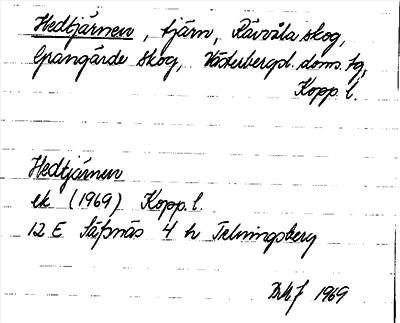 Hedtjärnen, tjärn, Rävvåla skog,
Grangärde skog, Västerbergsl. doms. tg,
Kopp. l.
Hedtjärnen
ek (1969) Kopp. l.
12 E Säfsnäs 4 h Telningsberg
1969